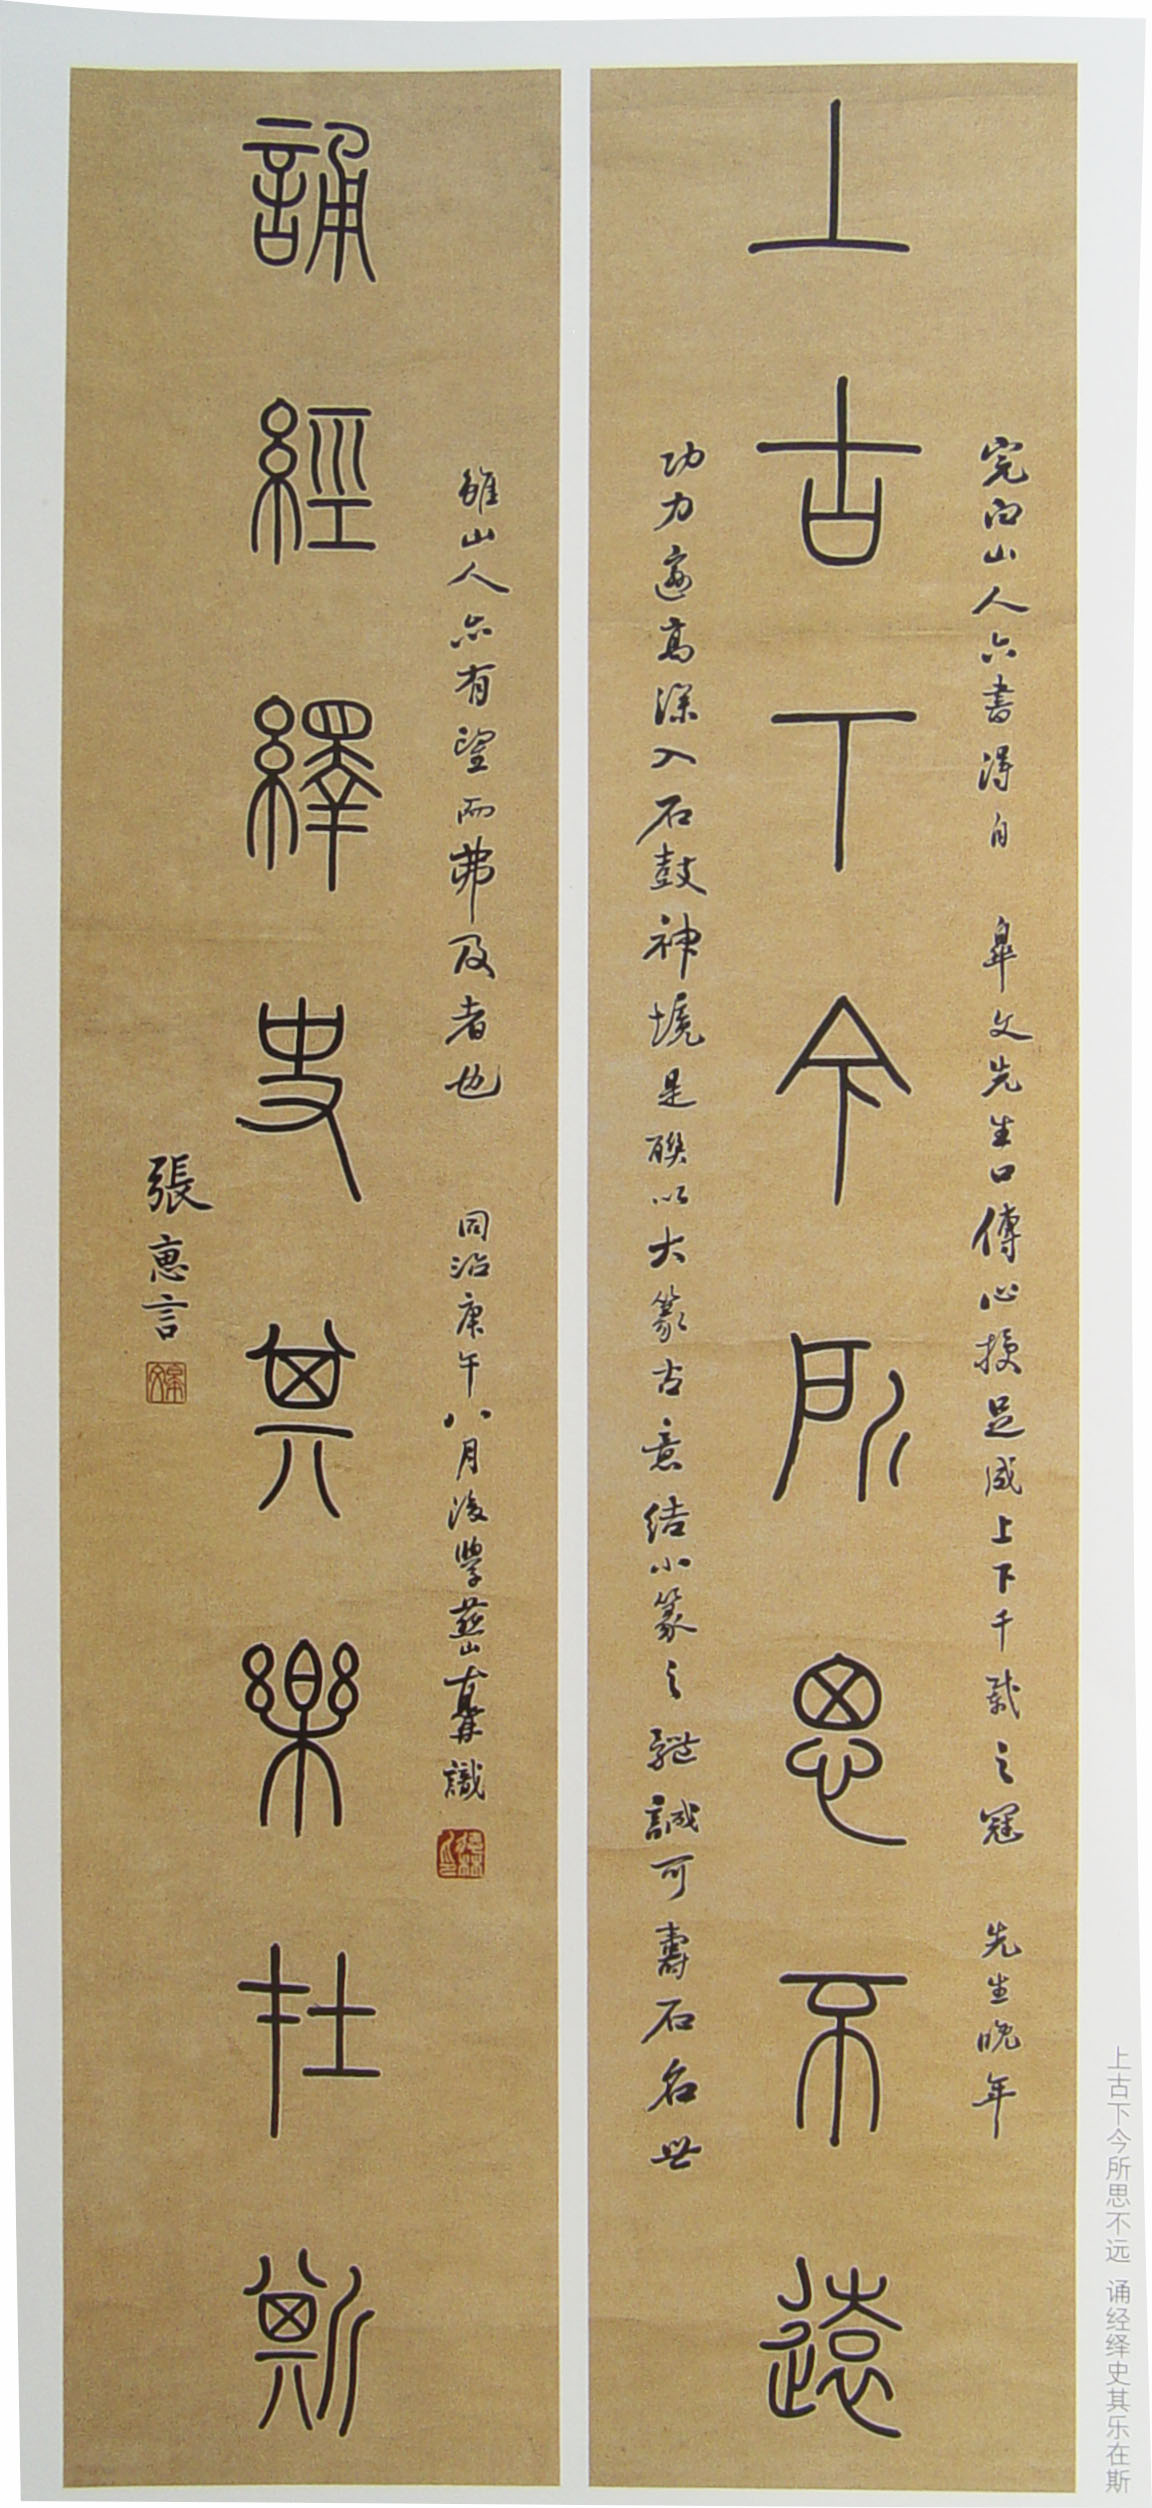 上古下今所思不遠
完白山人六書得自 皋文先生口傳心授足咸上下千載之冠 先生晚年
功力邃高深入石鼓神境是聯以大篆古意結小篆之體誠可壽石名世
誦經繹史其樂在斯
雖山人亦有望而弗及者也 同治庚午八月後學
識
張惠言
皋文
上古下今所思不远 诵经绎史其乐在斯